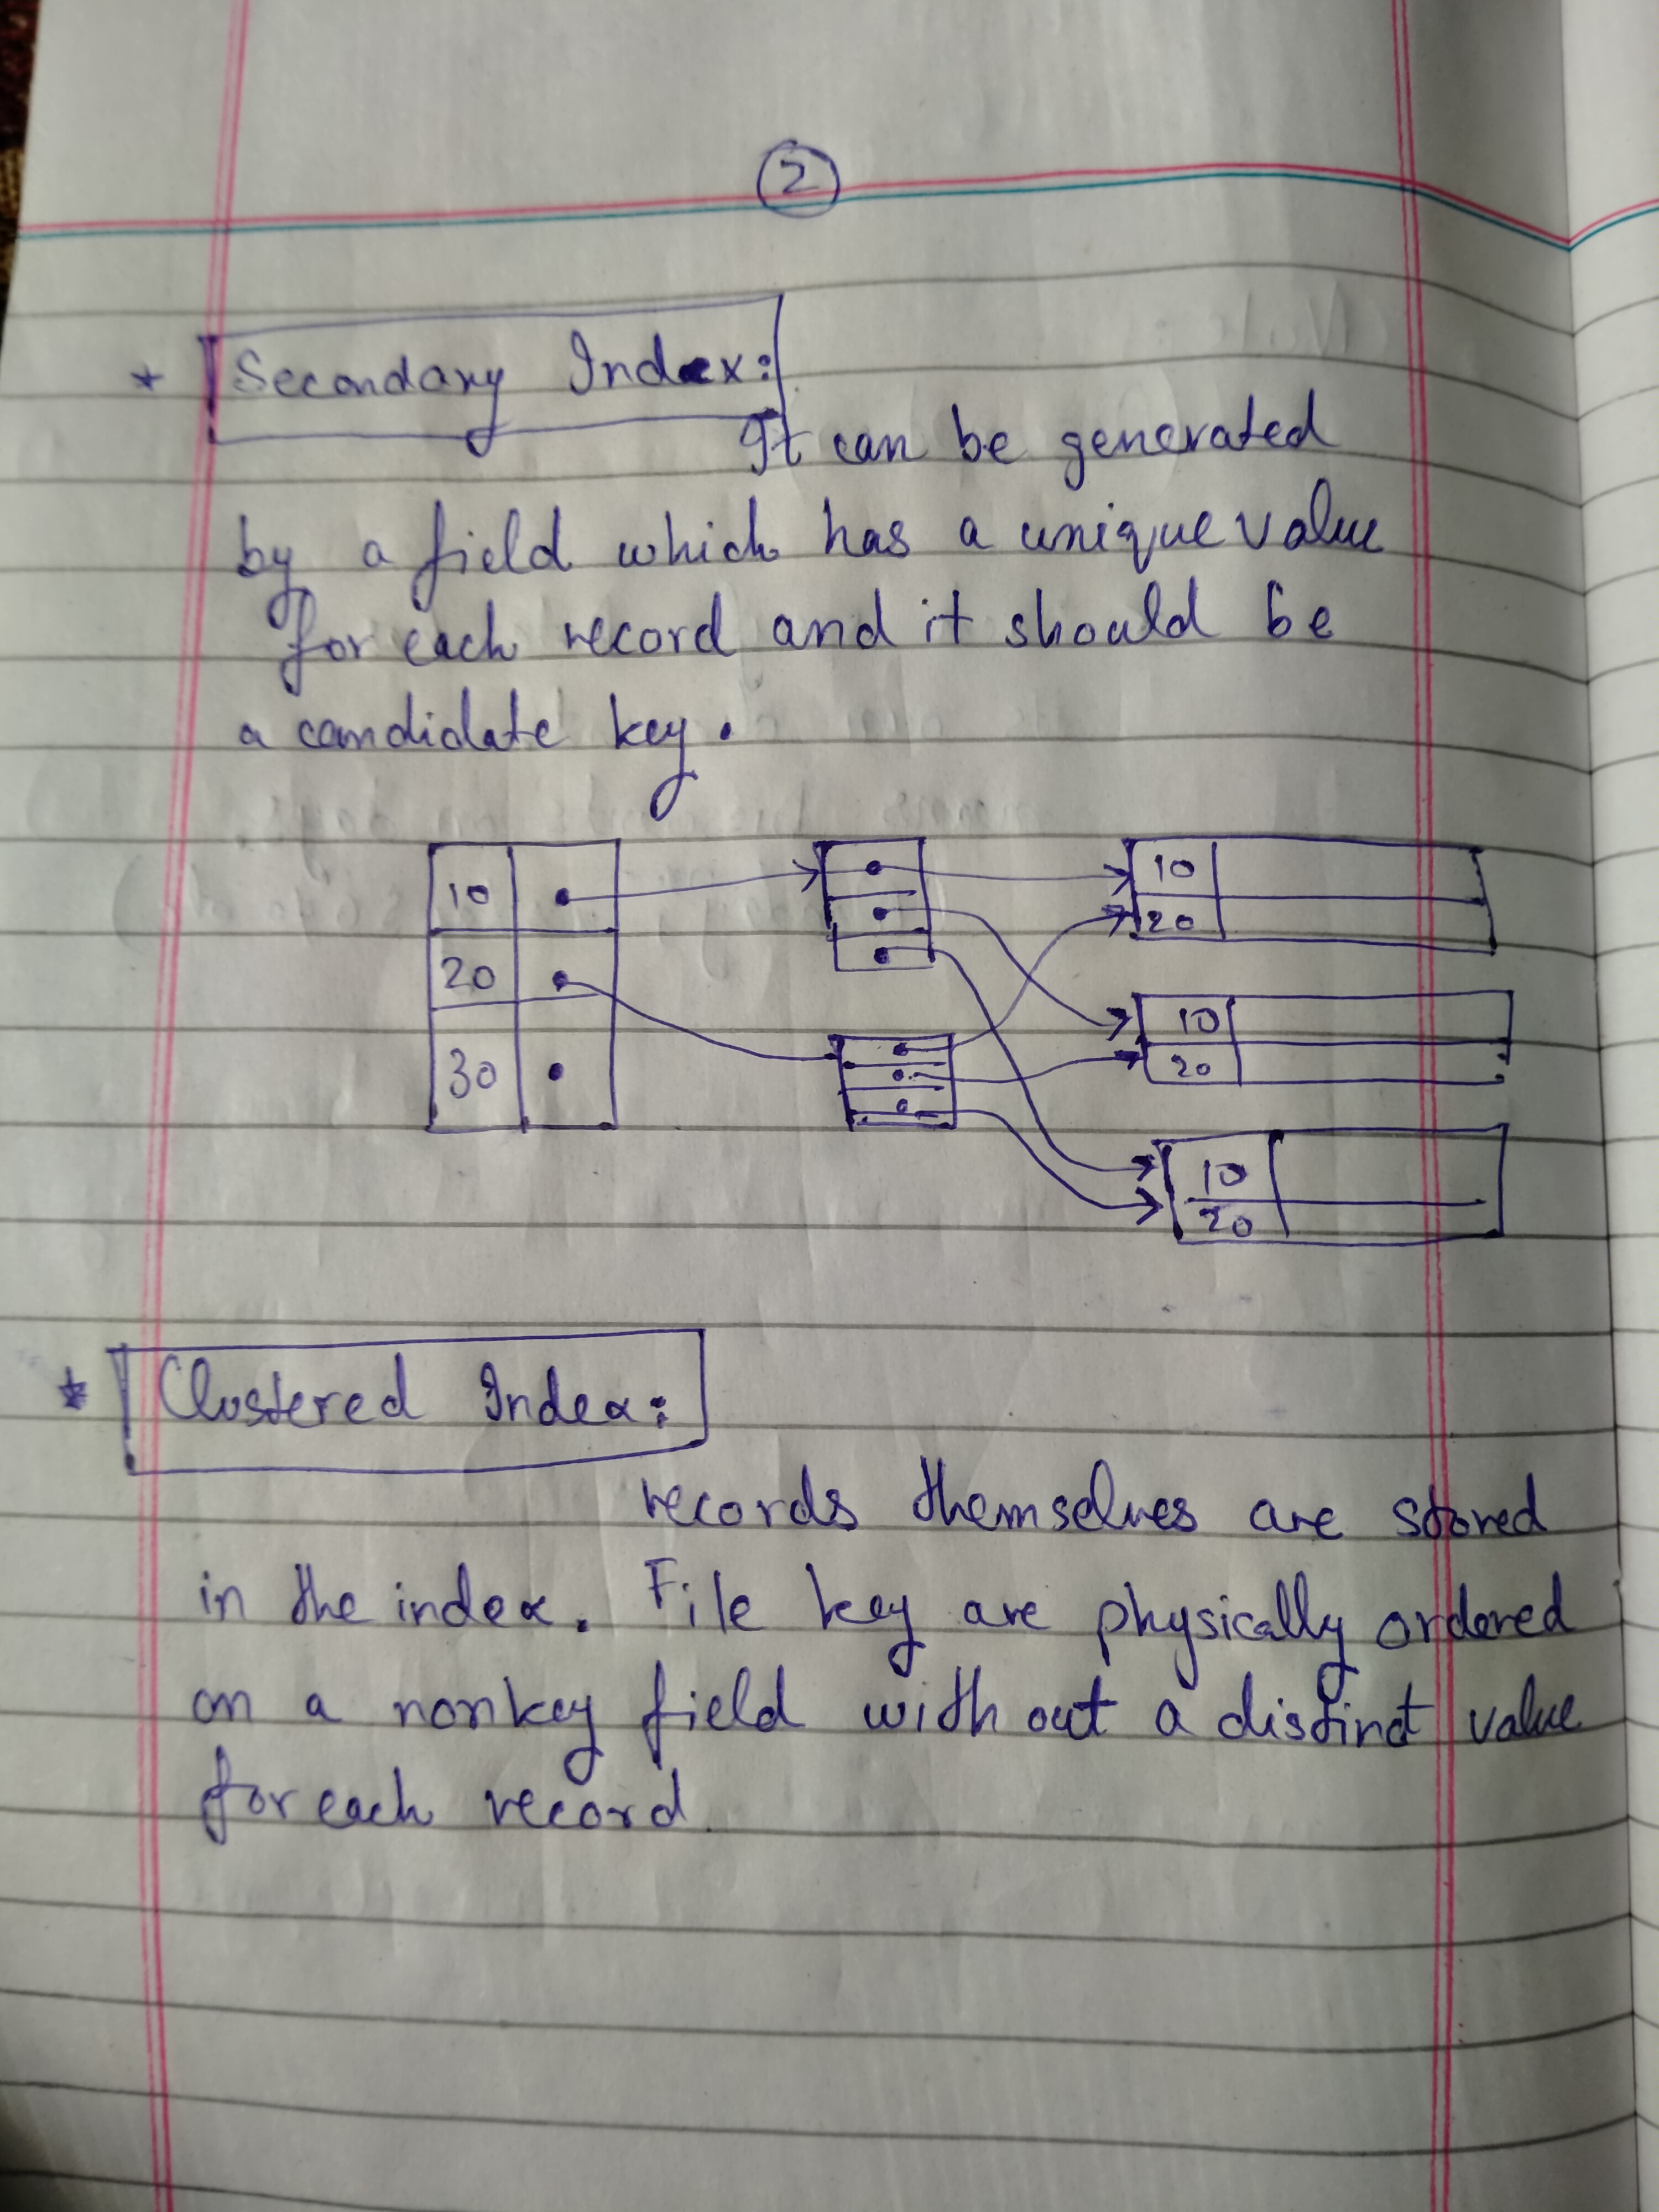 2
* Secondary Index:
It can be generated
by a field which has a unique value
for each record and it should be
a candidate key.
10 10
20 20
10
30 20
10
20
* Clustered Index:
records themselves are stored
in the index. File key are physically ordered
on a nonkey field with out a distinct value
for each record.